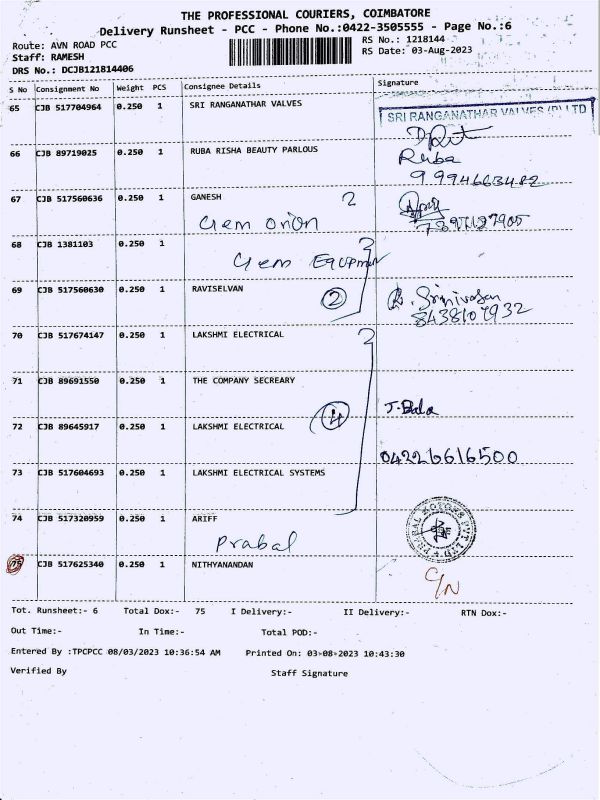 THE PROFESSIONAL COURIERS, COIMBATORE
Delivery Runsheet - PCC - Phone No.:0422-3505555 - Page No.:6
Route: AVN ROAD PCC
RS No.: 1218144
Staff: RAMESH
RS Date: 03-Aug-2023
DRS No.: DCJB121814406
S No Consignment No Weight PCS Consignee Details Signature
65 CJB 517704964 0.250 1 SRI RANGANATHAR VALVES
SRI RANGANATHAR VALVES (P) LTD
66 CJB 89719025 0.250 1 RUBA RISHA BEAUTY PARLOUS Ruba
9994663482
67 CJB 517560636 0.250 1 GANESH 2
Gem Orion
68 CJB 1381103 0.250 1
Gem
69 CJB 517560630 0.250 1 RAVISELVAN R. Srinivasan
2 8438107932
70 CJB 517674147 0.250 1 LAKSHMI ELECTRICAL
71 CJB 89691550 0.250 1 THE COMPANY SECREARY
4 J. Bala
72 CJB 89645917 0.250 1 LAKSHMI ELECTRICAL
04226616500
73 CJB 517604693 0.250 1 LAKSHMI ELECTRICAL SYSTEMS
74 CJB 517320959 0.250 1 ARIFF
PRABAL MOTORS PVT LTD
Prabal
75 CJB 517625340 0.250 1 NITHYANANDAN
C/N
Tot. Runsheet:- 6 Total Dox:- 75 I Delivery:- II Delivery:- RTN Dox:-
Out Time:- In Time:- Total POD:-
Entered By :TPCPCC 08/03/2023 10:36:54 AM Printed On: 03-08-2023 10:43:30
Verified By Staff Signature